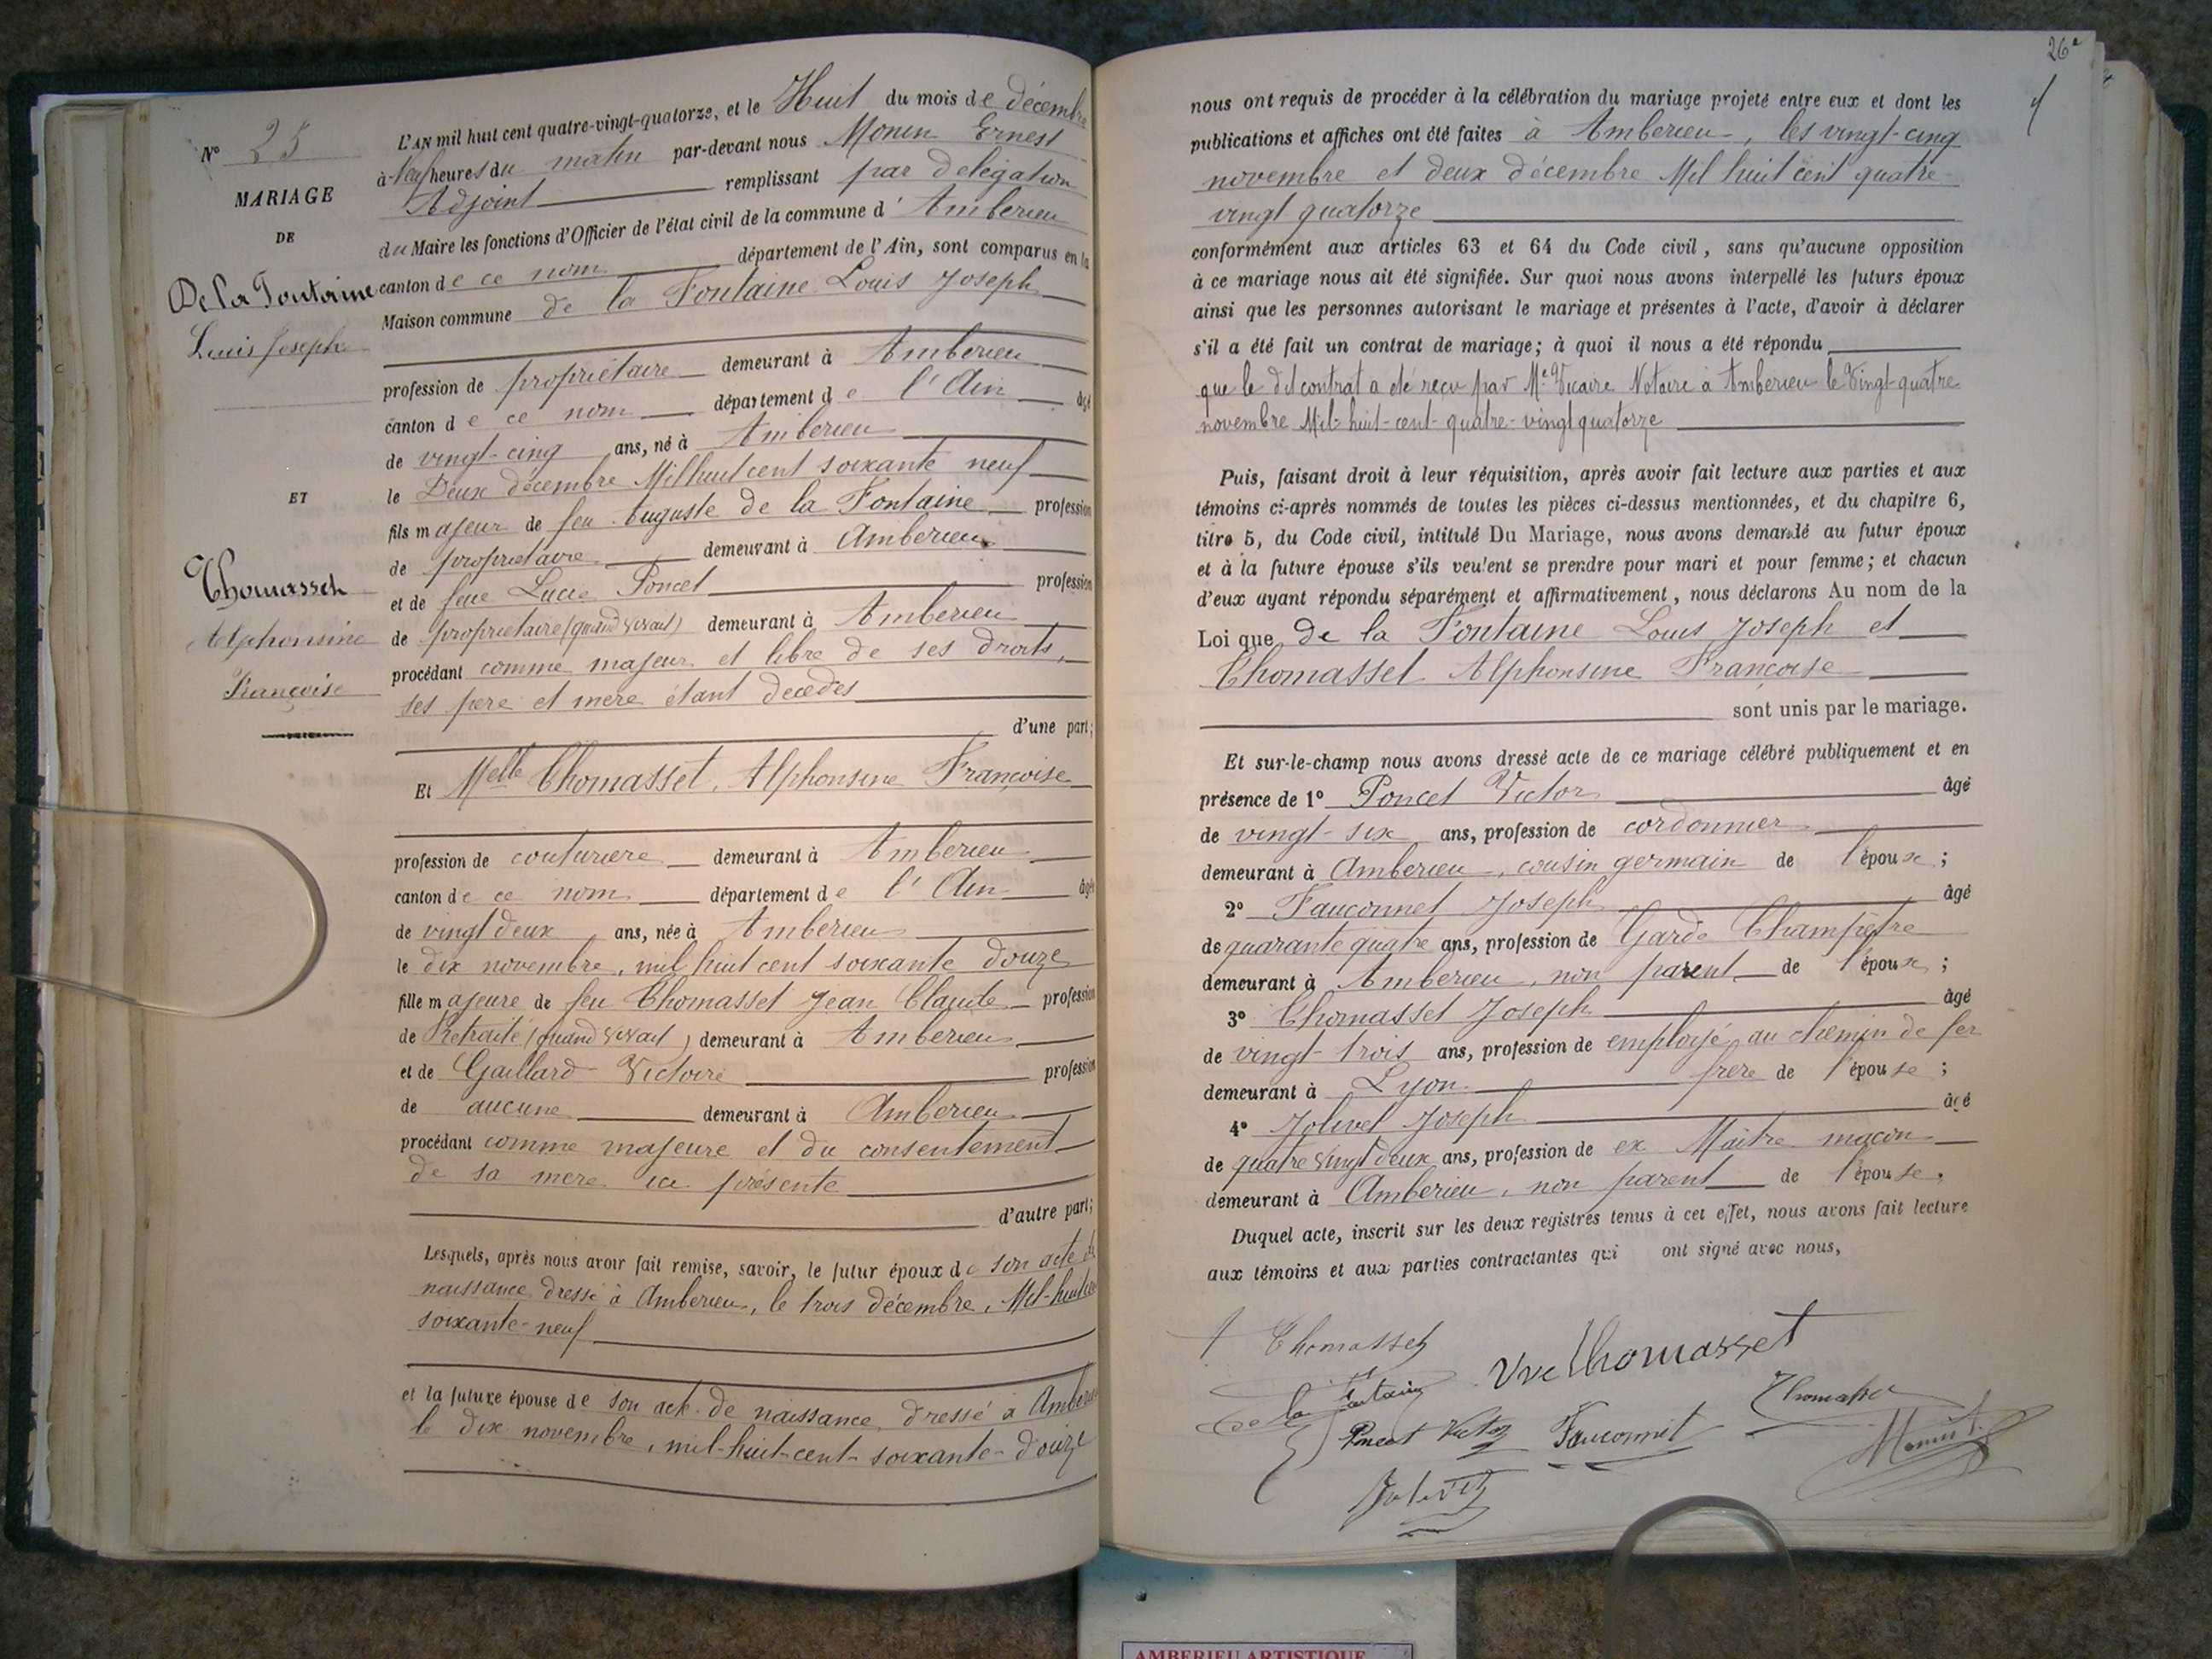 26
N° 25
MARIAGE
DE
De la Fontaine
Louis Joseph
ET
Thomasset
Alphonsine
Françoise
L'AN mil huit cent quatre-vingt-quatorze, et le Huit du mois de décembre
à neuf heures du matin par-devant nous Monin Ernest
Adjoint remplissant par délégation
du Maire les fonctions d'Officier de l'état civil de la commune d' Amberieu
canton de ce nom département de l'Ain, sont comparus en la
Maison commune de la Fontaine Louis Joseph
profession de propriétaire demeurant à Amberieu
canton de ce nom département de l'Ain âgé
de vingt-cinq ans, né à Amberieu
le Deux décembre Mil huit cent soixante neuf
fils majeur de feu Auguste de la Fontaine profession
de propriétaire demeurant à Amberieu
et de feue Lucie Poncet profession
de propriétaire (quand vivait) demeurant à Amberieu
procédant comme majeur et libre de ses droits,
ses père et mère étant décédés
d'une part;
Et Melle Thomasset, Alphonsine Françoise
profession de couturière demeurant à Amberieu
canton de ce nom département de l'Ain âgée
de vingt deux ans, née à Amberieu
le dix novembre, mil huit cent soixante douze
fille majeure de feu Thomasset Jean Claude profession
de Retraité (quand vivait) demeurant à Amberieu
et de Gaillard Victoire profession
de aucune demeurant à Amberieu
procédant comme majeure et du consentement
de sa mère ici présente
d'autre part;
Lesquels, après nous avoir fait remise, savoir, le futur époux de son acte de
naissance dressé à Amberieu, le trois décembre, Mil-huit-cent
soixante-neuf
et la future épouse de son acte de naissance dressé à Amberieu
le dix novembre, mil-huit-cent-soixante-douze
nous ont requis de procéder à la célébration du mariage projeté entre eux et dont les
publications et affiches ont été faites à Amberieu, les vingt-cinq
novembre et deux décembre Mil huit cent quatre-
vingt quatorze
conformément aux articles 63 et 64 du Code civil, sans qu'aucune opposition
à ce mariage nous ait été signifiée. Sur quoi nous avons interpellé les futurs époux
ainsi que les personnes autorisant le mariage et présentes à l'acte, d'avoir à déclarer
s'il a été fait un contrat de mariage; à quoi il nous a été répondu
que le dit contrat a été reçu par Me Vicaire Notaire à Amberieu le Vingt-quatre
novembre Mil-huit-cent-quatre-vingt quatorze
Puis, faisant droit à leur réquisition, après avoir fait lecture aux parties et aux
témoins ci-après nommés de toutes les pièces ci-dessus mentionnées, et du chapitre 6,
titre 5, du Code civil, intitulé Du Mariage, nous avons demandé au futur époux
et à la future épouse s'ils veulent se prendre pour mari et pour femme; et chacun
d'eux ayant répondu séparément et affirmativement, nous déclarons Au nom de la
Loi que de la Fontaine Louis Joseph et
Thomasset Alphonsine Françoise
sont unis par le mariage.
Et sur-le-champ nous avons dressé acte de ce mariage célébré publiquement et en
présence de 1° Poncet Victor âgé
de vingt-six ans, profession de cordonnier
demeurant à Amberieu, cousin germain de l'épouse;
2° Fauconnet Joseph âgé
de quarante quatre ans, profession de Garde Champêtre
demeurant à Amberieu, non parent de l'épouse;
3° Thomasset Joseph âgé
de vingt-trois ans, profession de employé au chemin de fer
demeurant à Lyon frère de l'épouse;
4° Jolivet Joseph âgé
de quatre vingt deux ans, profession de ex Maître maçon
demeurant à Amberieu, non parent de l'épouse.
Duquel acte, inscrit sur les deux registres tenus à cet effet, nous avons fait lecture
aux témoins et aux parties contractantes qui ont signé avec nous,
A Thomasset
Vve Thomasset
De la Fontaine
Poncet Victor Fauconnet
Thomasset
Monin
Jolivet
AMBERIEU ARTISTIQUE